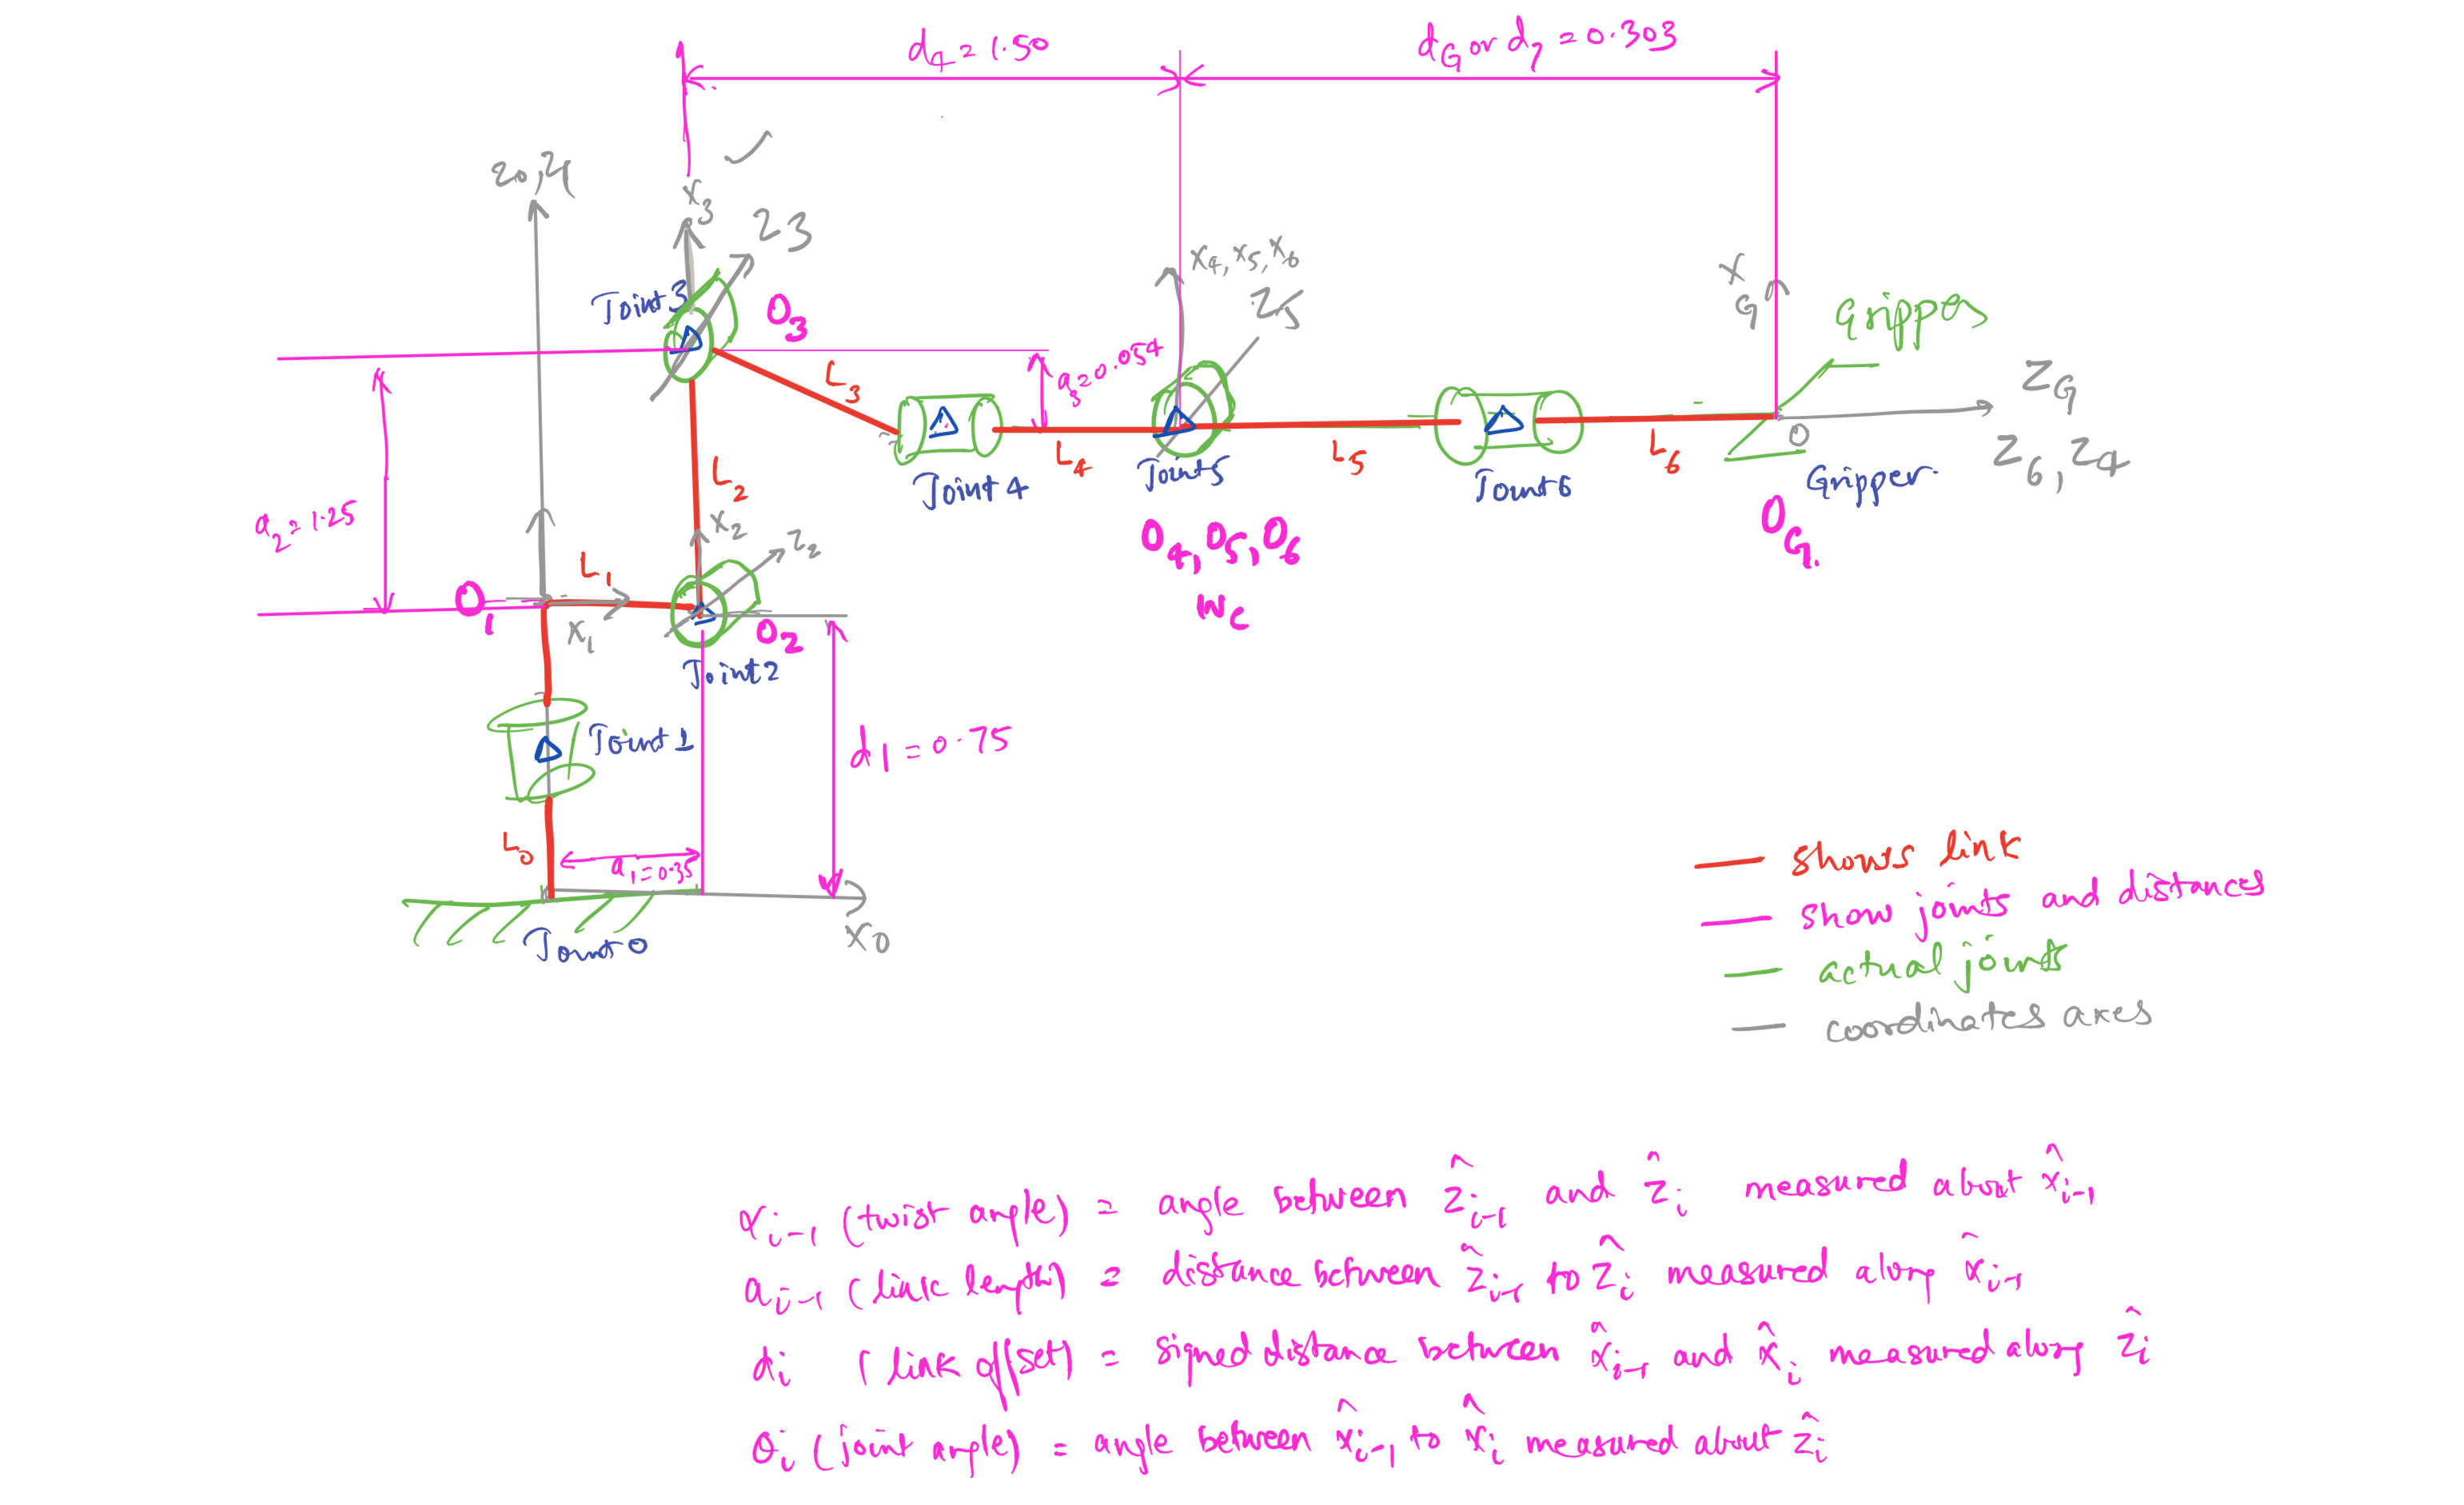 d4=1.50
dG or d7 = 0.303
z0,z1
x3
z3
Joint3
O3
x4, x5, x6
z5
xG
Gripper
L3
a3=0.054
zG
z6, z4
O
Joint4
L4
Joint5
L5
Joint6
L6
Gripper.
OG.
O4, O5, O6
Wc
L2
a2=1.25
x2
z2
L1
O1
x1
O2
Joint2
Joint1
d1=0.75
L0
a1=0.35
x0
Joint0
shows link
show joints and distances
actual joints
coordinates axes
αi-1 (twist angle) = angle between ẑi-1 and ẑi measured about x̂i-1
ai-1 (link length) = distance between ẑi-1 to ẑi measured along x̂i-1
di (link offset) = signed distance between x̂i-1 and x̂i measured along ẑi
θi (joint angle) = angle between x̂i-1 to x̂i measured about ẑi